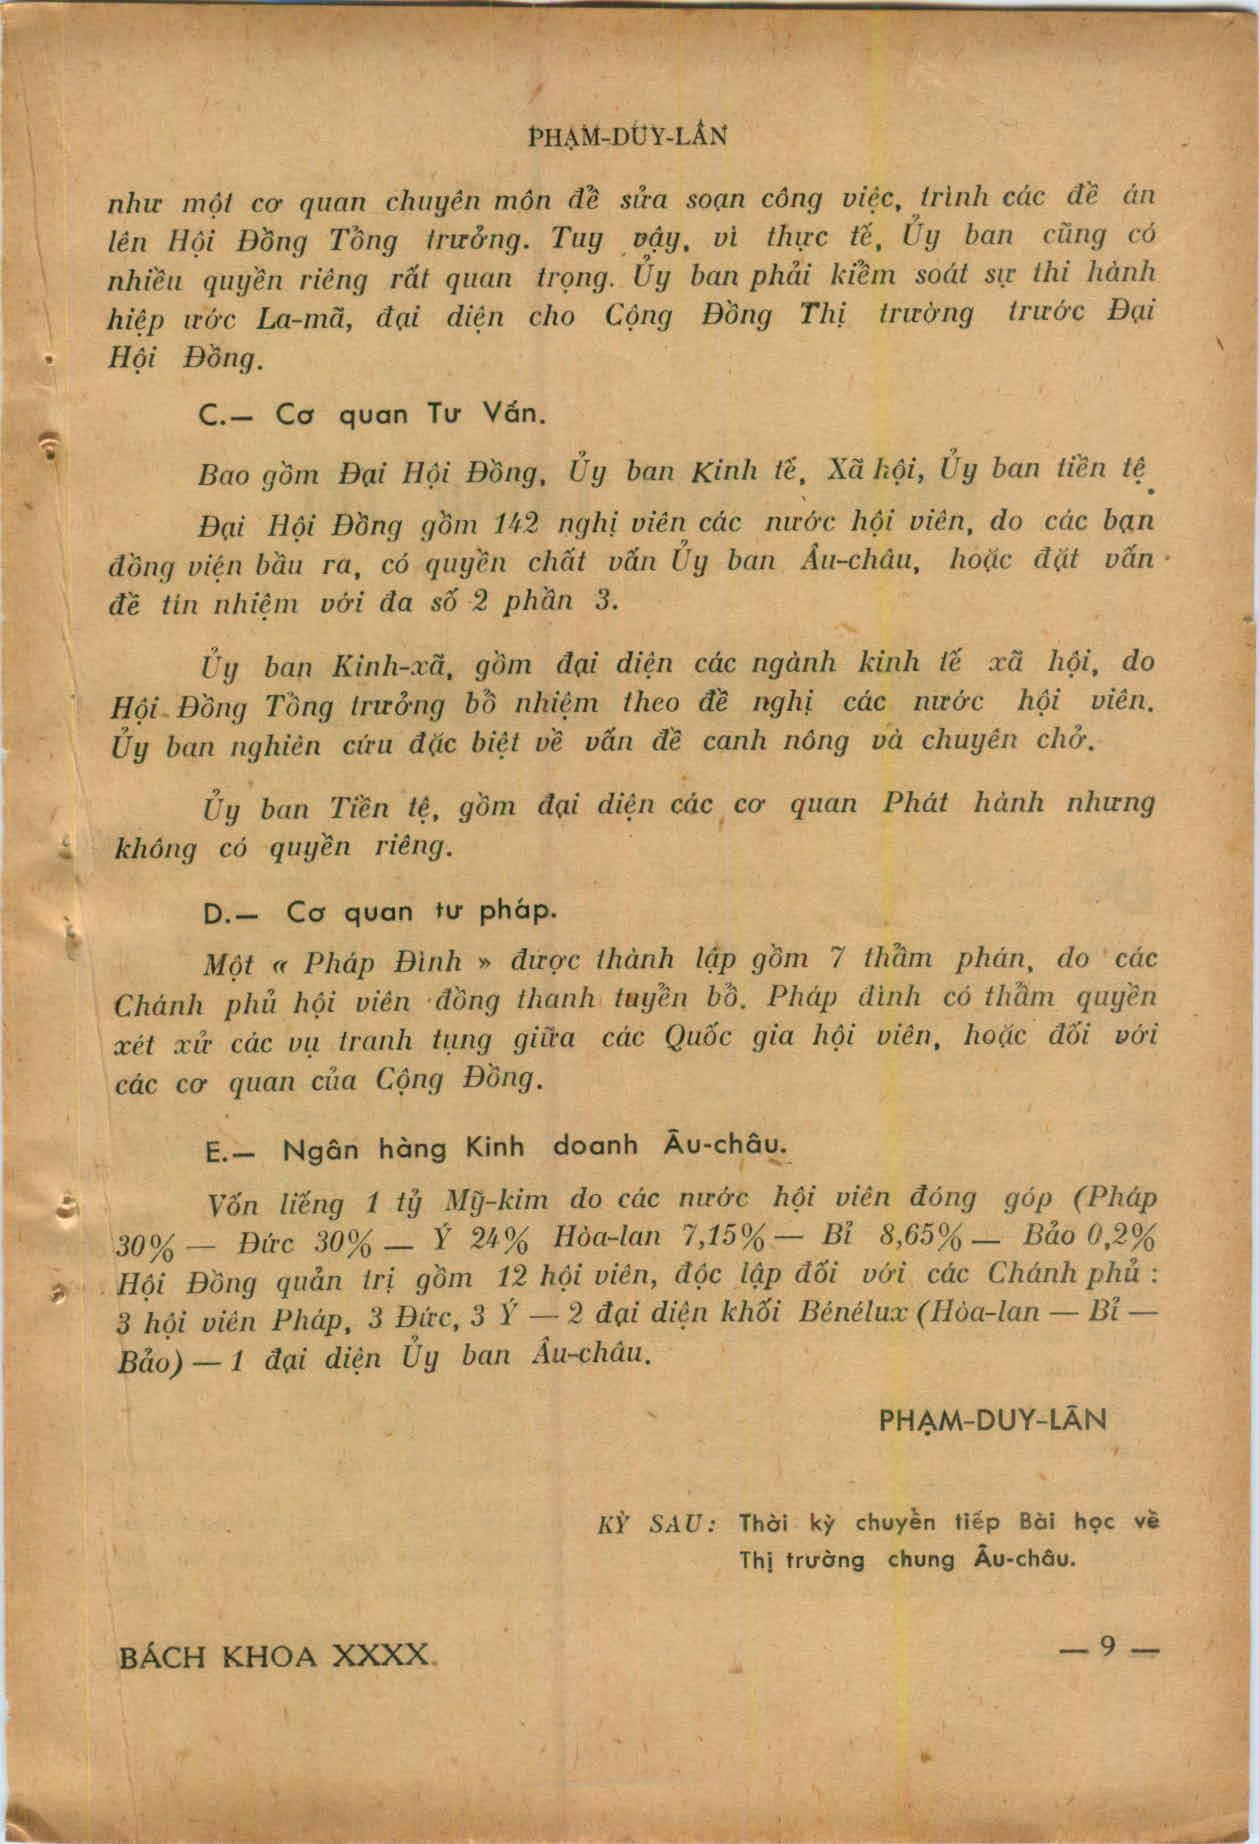 PHẠM-DUY-LÂN
như một cơ quan chuyên môn để sửa soạn công việc, trình các đề án
lên Hội Đồng Tổng trưởng. Tuy vậy, vì thực tế, Ủy ban cũng có
nhiều quyền riêng rất quan trọng. Ủy ban phải kiểm soát sự thi hành
hiệp ước La-mã, đại diện cho Cộng Đồng Thị trường trước Đại
Hội Đồng.
C.— Cơ quan Tư Vấn.
Bao gồm Đại Hội Đồng, Ủy ban Kinh tế, Xã hội, Ủy ban tiền tệ.
Đại Hội Đồng gồm 142 nghị viên các nước hội viên, do các bạn
đồng viện bầu ra, có quyền chất vấn Ủy ban Âu-châu, hoặc đặt vấn
đề tín nhiệm với đa số 2 phần 3.
Ủy ban Kinh-xã, gồm đại diện các ngành kinh tế xã hội, do
Hội Đồng Tổng trưởng bổ nhiệm theo đề nghị các nước hội viên.
Ủy ban nghiên cứu đặc biệt về vấn đề canh nông và chuyên chở.
Ủy ban Tiền tệ, gồm đại diện các cơ quan Phát hành nhưng
không có quyền riêng.
D.— Cơ quan tư pháp.
Một « Pháp Đình » được thành lập gồm 7 thẩm phán, do các
Chánh phủ hội viên đồng thanh tuyển bổ. Pháp đình có thẩm quyền
xét xử các vụ tranh tụng giữa các Quốc gia hội viên, hoặc đối với
các cơ quan của Cộng Đồng.
E.— Ngân hàng Kinh doanh Âu-châu.
Vốn liếng 1 tỷ Mỹ-kim do các nước hội viên đóng góp (Pháp
30% — Đức 30% — Ý 24% Hòa-lan 7,15% — Bỉ 8,65% — Bảo 0,2%
Hội Đồng quản trị gồm 12 hội viên, độc lập đối với các Chánh phủ :
3 hội viên Pháp, 3 Đức, 3 Ý — 2 đại diện khối Bénélux (Hòa-lan — Bỉ —
Bảo) — 1 đại diện Ủy ban Âu-châu.
PHẠM-DUY-LÂN
KỲ SAU: Thời kỳ chuyển tiếp Bài học về
Thị trường chung Âu-châu.
BÁCH KHOA XXXX
— 9 —